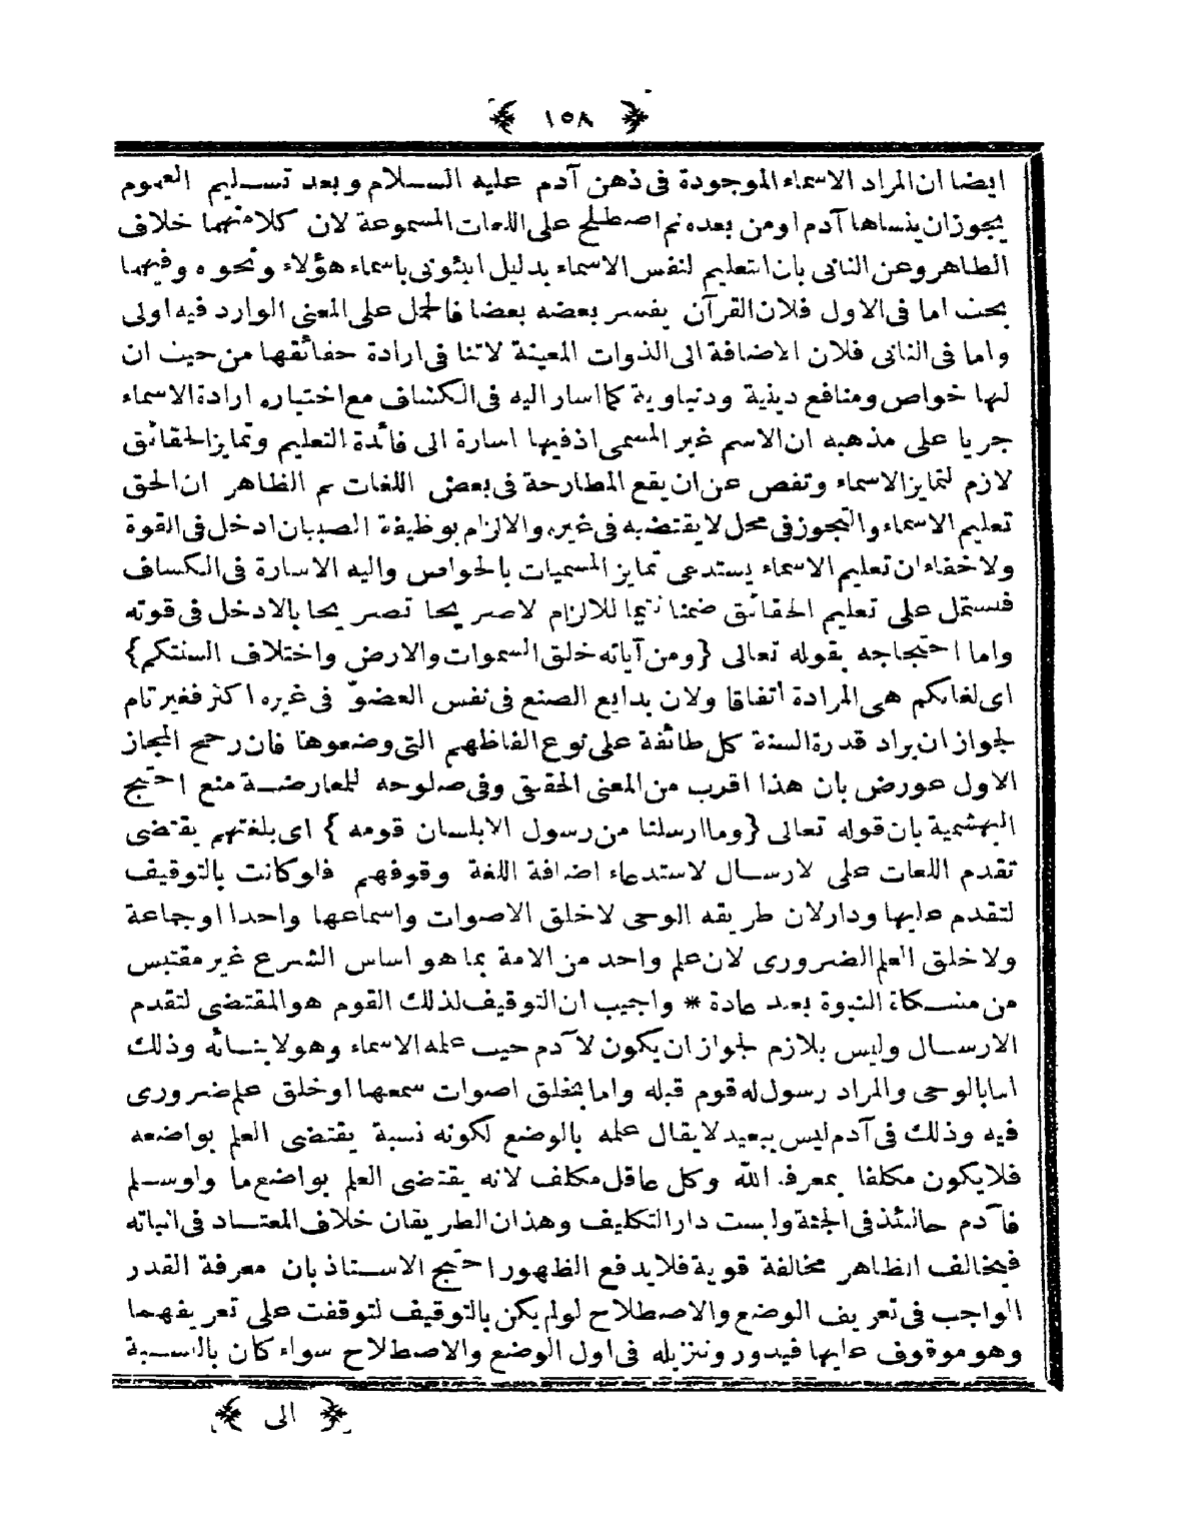 ١٥٨
ايضا ان المراد الاسماء الموجودة فى ذهن آدم عليه السلام وبعد تسليم العموم
يجوزان ينساها آدم اومن بعده ثم اصطلح على اللغات المسموعة لان كلا منهما خلاف
الظاهر وعن الثانى بان التعليم لنفس الاسماء بدليل انبئونى باسماء هؤلاء ونحوه وفيهما
بحث اما فى الاول فلان القرآن يفسر بعضه بعضا فالحمل على المعنى الوارد فيه اولى
واما فى الثانى فلان الاضافة الى الذوات المعينة لاتنا فى ارادة حقائقها من حيث ان
لها خواص ومنافع دينية ودنياوية كما اشار اليه فى الكشاف مع اختياره ارادة الاسماء
جريا على مذهبه ان الاسم غير المسمى اذفيها اشارة الى فائدة التعليم وتمايز الحقائق
لازم لتمايز الاسماء وتفص عن ان يقع المطارحة فى بعض اللغات ثم الظاهر ان الحق
تعليم الاسماء والتجوز فى محل لا يقتضيه فى غيره والالزام بوظيفة الصبيان ادخل فى القوة
ولا خفاء ان تعليم الاسماء يستدعى تمايز المسميات بالخواص واليه الاشارة فى الكشاف
فيشتمل على تعليم الحقائق ضمنا تتيما للالزام لاصريحا تصريحا بالادخل فى قوته
واما احتجاجه بقوله تعالى {ومن آياته خلق السموات والارض واختلاف السنتكم}
اى لغاتكم هى المرادة اتفاقا ولان بدايع الصنع فى نفس العضو فى غيره اكثر فغير تام
لجواز ان يراد قدرة السنة كل طائفة على نوع الفاظهم التى وضعوها فان رجح المجاز
الاول عورض بان هذا اقرب من المعنى الحقيقى وفى صلوحه للمعارضة منع احتج
البهشمية بان قوله تعالى {وما ارسلنا من رسول الابلسان قومه} اى بلغتهم يقتضى
تقدم اللغات على لارسال لاستدعاء اضافة اللغة وقوفهم فلو كانت بالتوقيف
لتقدم عليها ودار لان طريقه الوحى لا خلق الاصوات واسماعها واحدا اوجماعة
ولا خلق العلم الضرورى لان علم واحد من الامة بما هو اساس الشرع غير مقتبس
من مشكاة النبوة بعيد عادة * واجيب ان التوقيف لذلك القوم هو المقتضى لتقدم
الارسال وليس بلازم لجواز ان يكون لآدم حيث علمه الاسماء وهو لابنائه وذلك
اما بالوحى والمراد رسول له قوم قبله واما بخلق اصوات سمعها اوخلق علم ضرورى
فيه وذلك فى آدم ليس ببعيد لا يقال علمه بالوضع لكونه نسبة يقتضى العلم بواضعه
فلا يكون مكلفا بمعرفة الله وكل عاقل مكلف لانه يقتضى العلم بواضع ما ولو سلم
فآدم حالئذ فى الجنة وليست دار التكليف وهذان الطريقان خلاف المعتاد فى اثباته
فيخالف الظاهر مخالفة قوية فلا يدفع الظهور احتج الاستاذ بان معرفة القدر
الواجب فى تعريف الوضع والاصطلاح لولم يكن بالتوقيف لتوقفت على تعريفهما
وهو موقوف عليها فيدور وتنزيله فى اول الوضع والاصطلاح سواء كان بالنسبة
الى